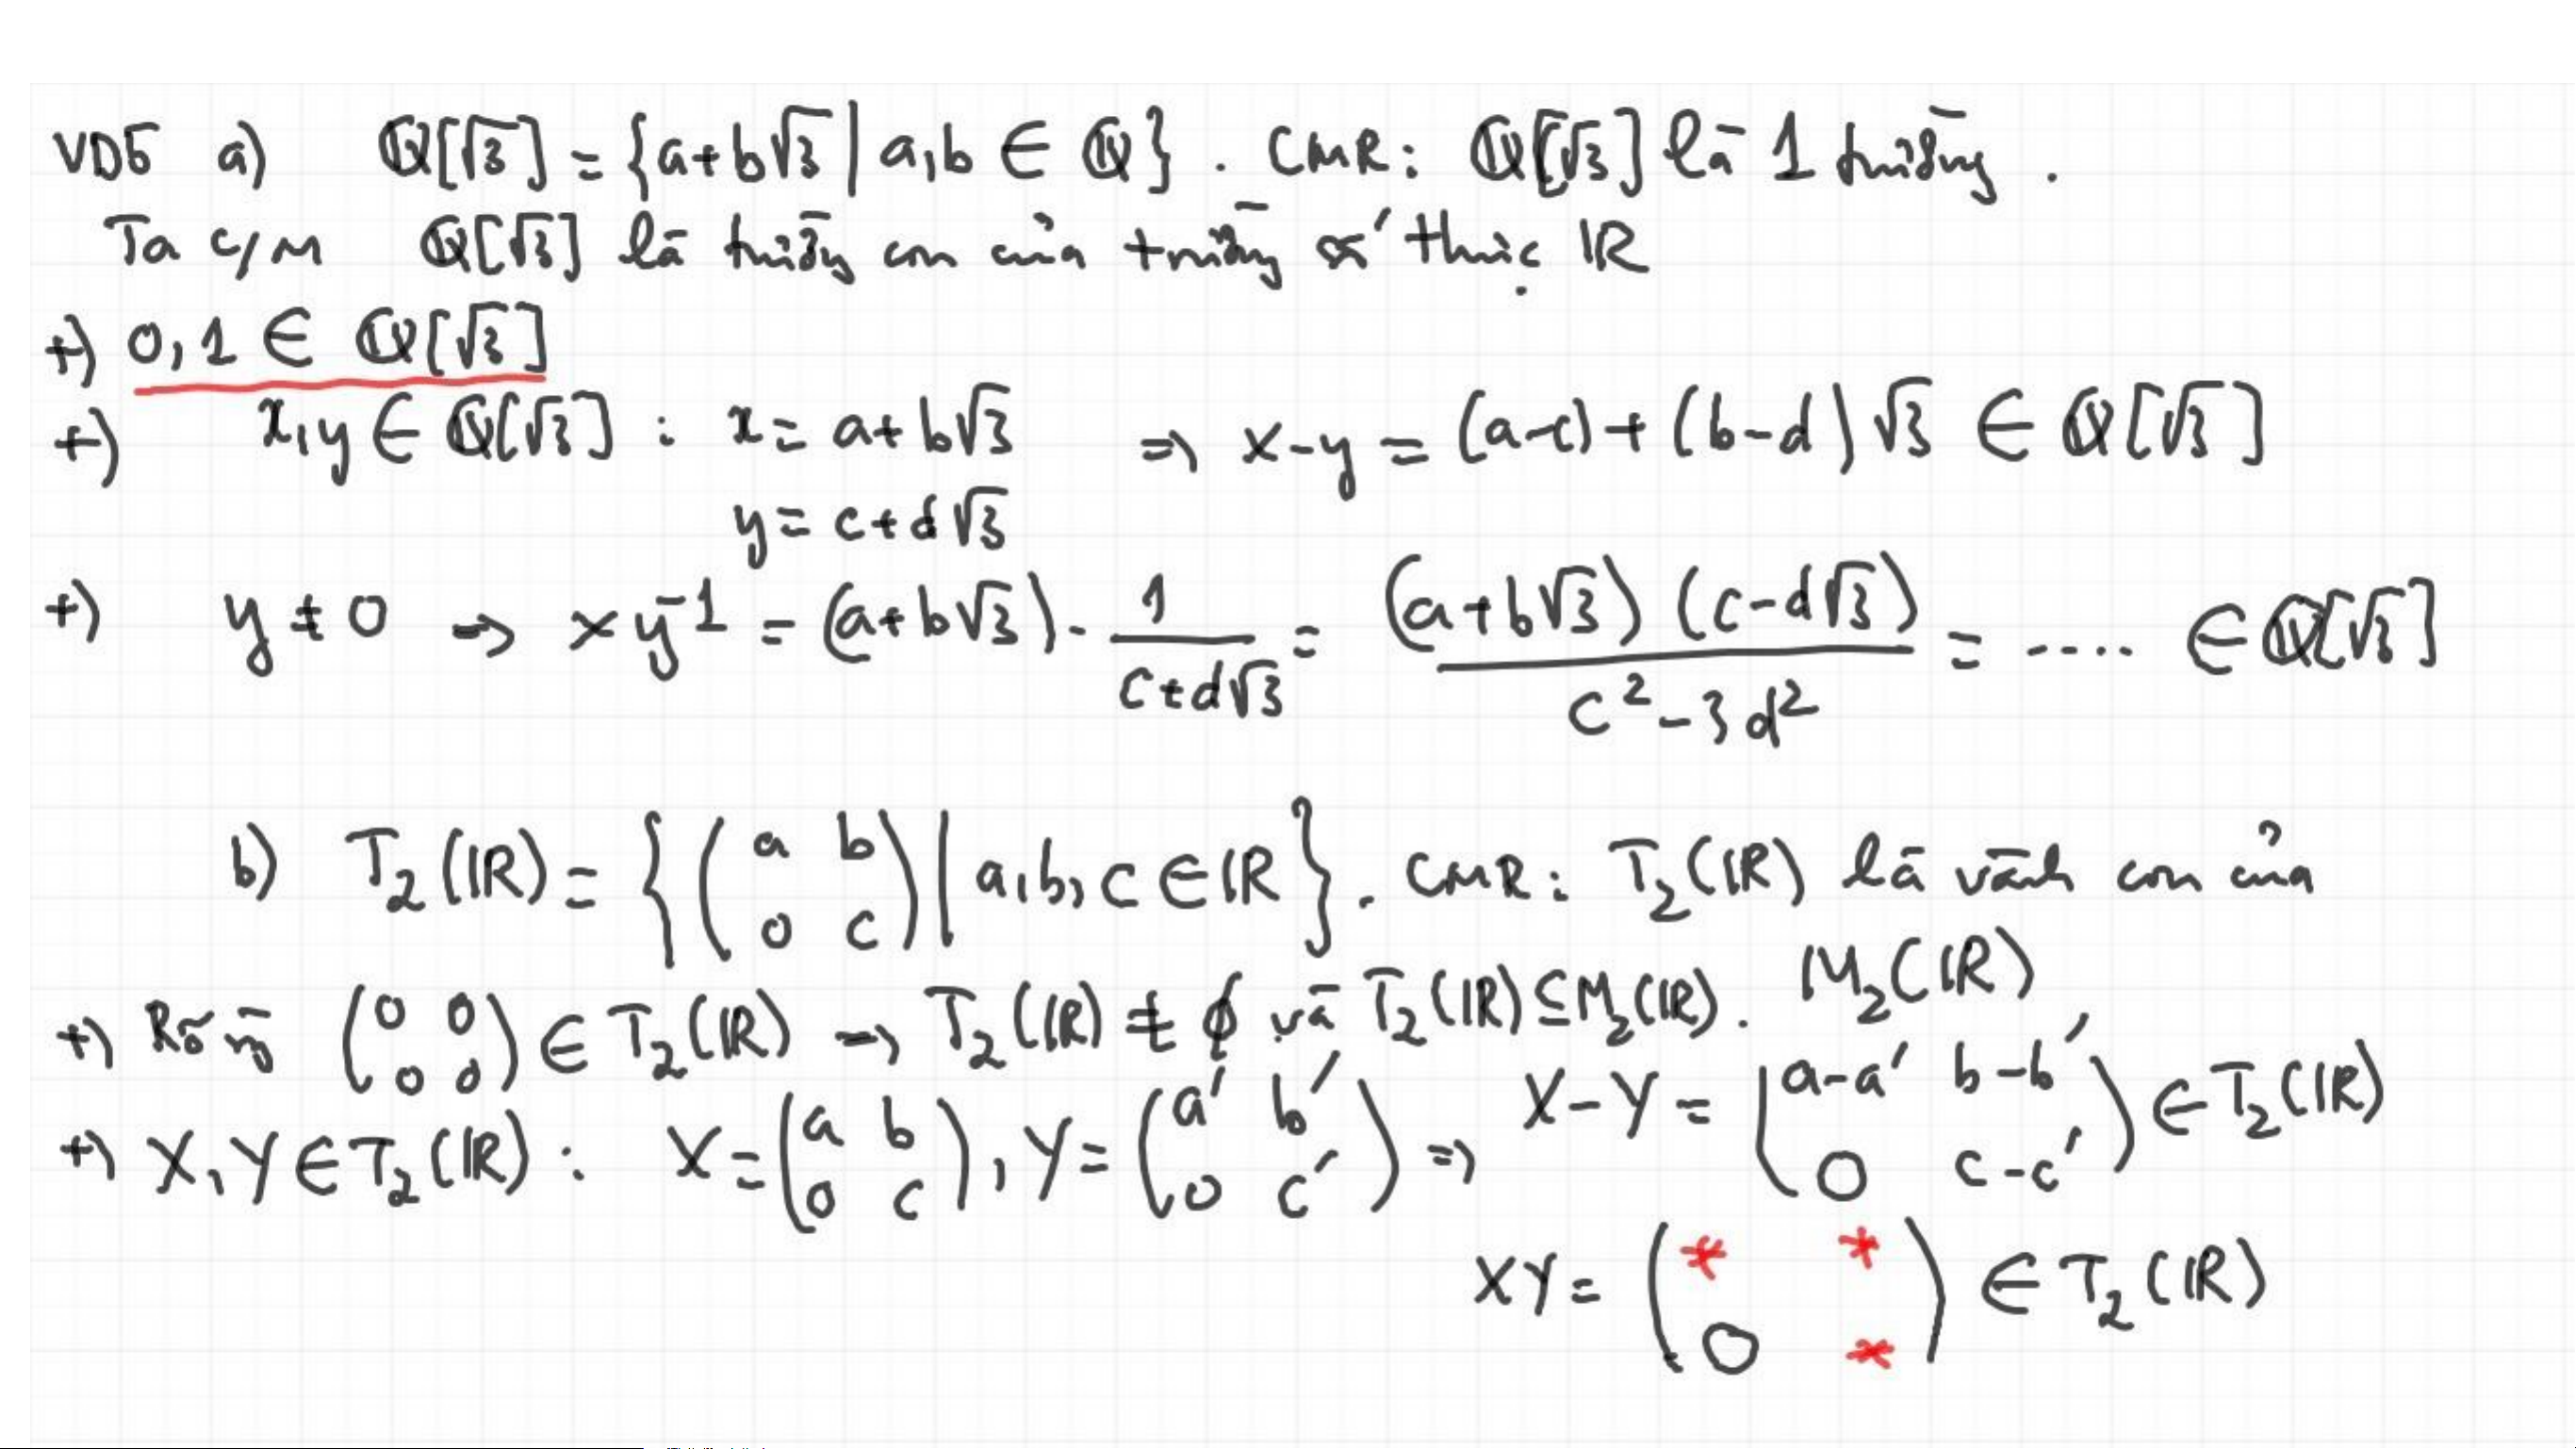 VD5 a) ℚ[√3] = {a+b√3 | a,b ∈ ℚ} . CMR: ℚ[√3] là 1 trường .
Ta c/m ℚ[√3] là trường con của trường số thực ℝ
+) 0,1 ∈ ℚ[√3]
+) x,y ∈ ℚ[√3] : x = a+b√3 => x-y = (a-c)+(b-d)√3 ∈ ℚ[√3]
y = c+d√3
+) y ≠ 0 => xy⁻¹ = (a+b√3) . 1/(c+d√3) = (a+b√3)(c-d√3)/(c²-3d²) = .... ∈ ℚ[√3]
b) T₂(ℝ) = { (a b ; 0 c) | a,b,c ∈ ℝ } . CMR: T₂(ℝ) là vành con của
M₂(ℝ)
+) Rõ rg (0 0 ; 0 0) ∈ T₂(ℝ) => T₂(ℝ) ≠ ∅ và T₂(ℝ) ⊆ M₂(ℝ).
+) X,Y ∈ T₂(ℝ) : X = (a b ; 0 c), Y = (a' b' ; 0 c') => X-Y = (a-a' b-b' ; 0 c-c') ∈ T₂(ℝ)
XY = (* * ; 0 *) ∈ T₂(ℝ)